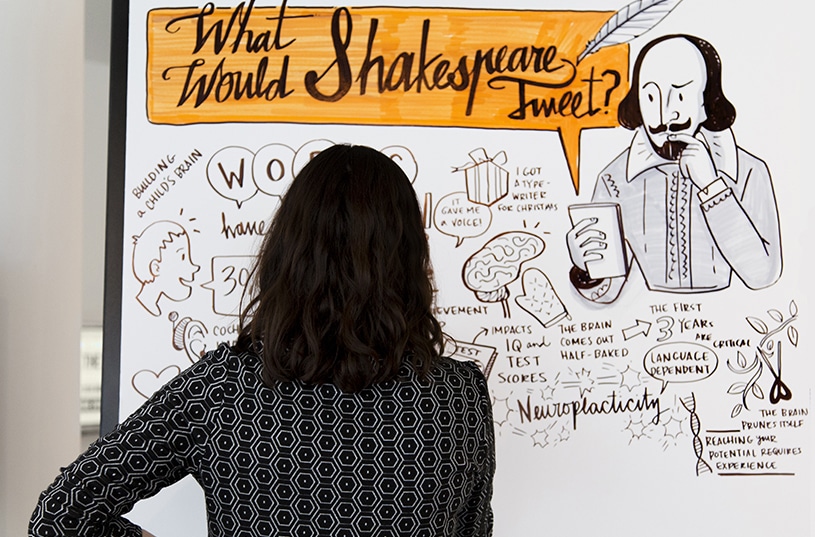 What
Would Shakespeare
Tweet?
BUILDING
a CHILD'S BRAIN
WO
have
30
COCH
IT
GAVE ME
A VOICE!
I GOT
A TYPE-
WRITER
FOR CHRISTMAS
IMPACTS
IQ and
TEST
SCORES
TEST
THE BRAIN
COMES OUT
HALF-BAKED
THE FIRST
3 YEARS
ARE
CRITICAL
LANGUAGE
DEPENDENT
Neuroplacticity
THE BRAIN
PRUNES ITSELF
REACHING YOUR
POTENTIAL REQUIRES
EXPERIENCE